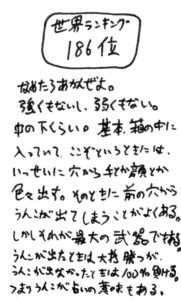 世界ランキング
186位
なめたらあかんぜよ。
強くもないし、弱くもない。
中の下くらい。基本、箱の中に
入っていて、ここぞというときには、
いっせいに穴から手とか顔とか
色々出す。そのときに前の穴から
うんこが出てしまうことがよくある。
しかしそれが最大の武器でもある。
うんこが出たときは大抵勝つが、
うんこが出なかったときは100%負ける。
つまりうんこが占いの意味もある。